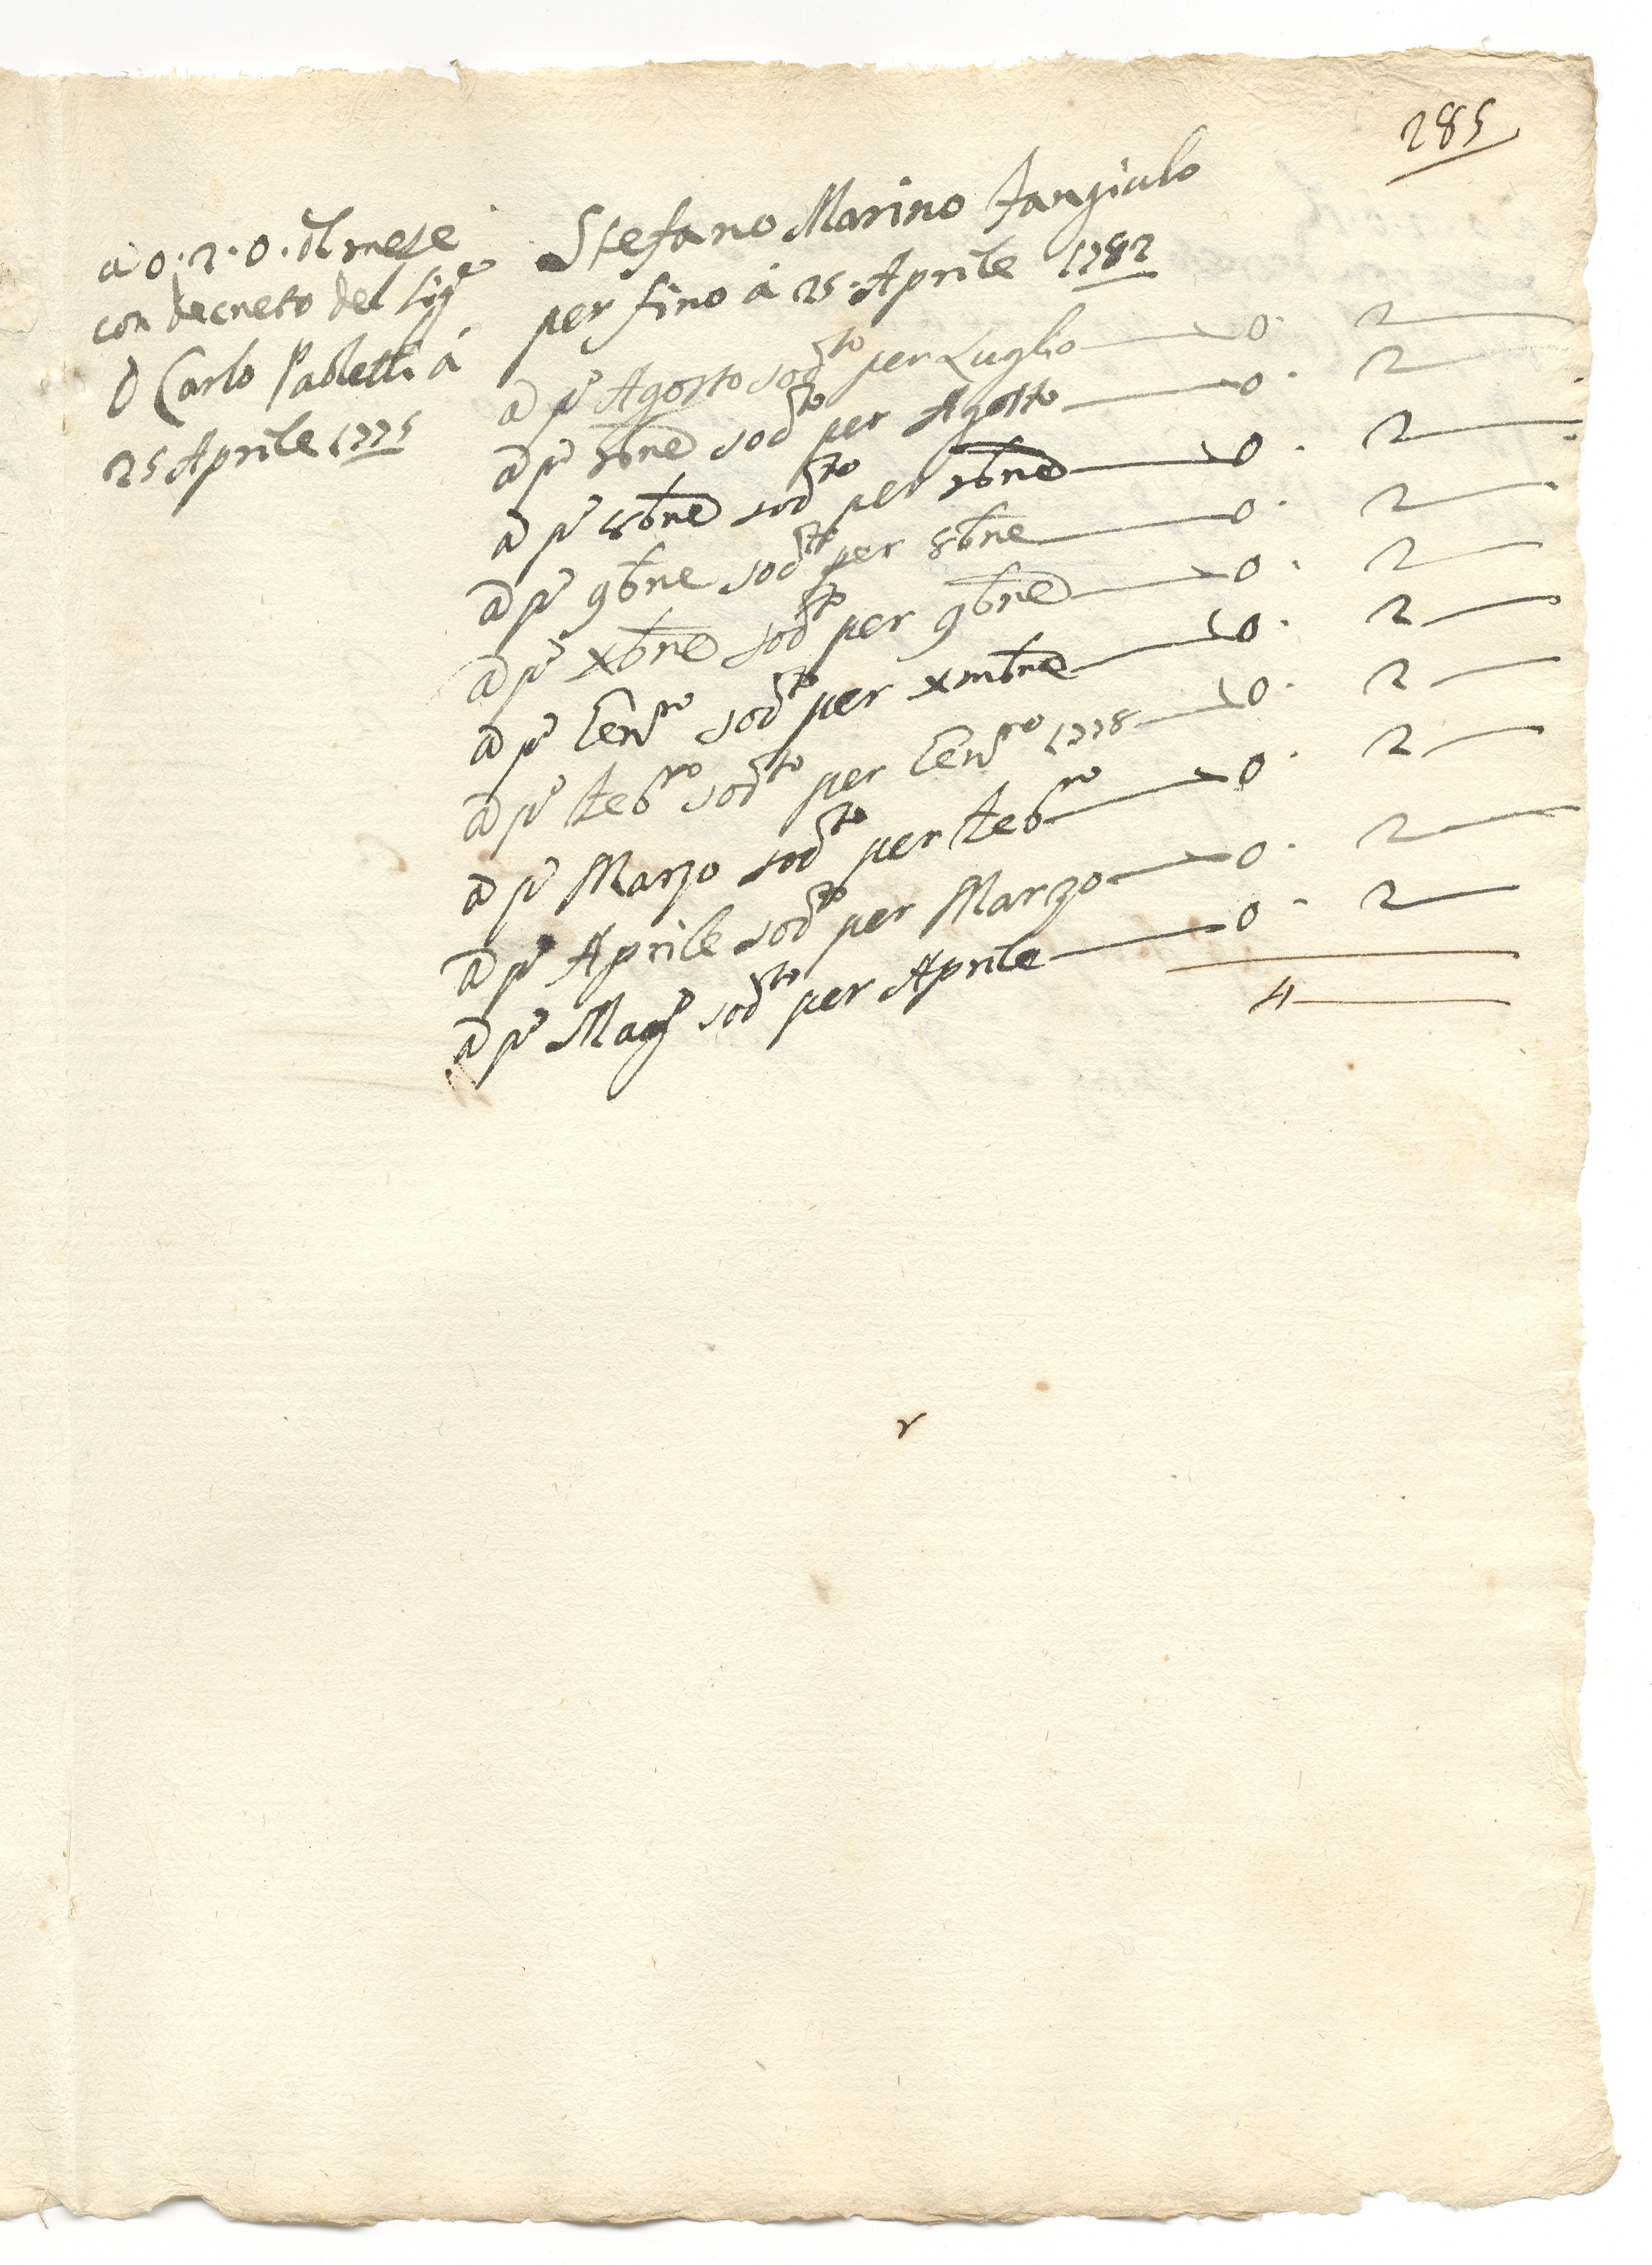 285
à 0. 2. 0. dl mese
con decreto del Sigre
D Carlo Paoletti á
25 Aprile 1775
Stefano Marino Fangiulo
per fino á 25. Aprile 1782
a pº Agosto sodto per Luglio 0. 2
a pº 7bre sodto per Agosto 0. 2
a pº 8bre sodto per 7bre 0. 2
a pº 9bre sodto per 8bre 0. 2
a pº xbre sodto per 9bre 0. 2
a pº Genro sodto per xmbre 0. 2
a pº Febro sodto per Genro 1778 0. 2
a pº Marzo sodto per Febro 0. 2
a pº Aprile sodto per Marzo 0. 2
a pº Magº sodto per Aprile 0. 2
4
r